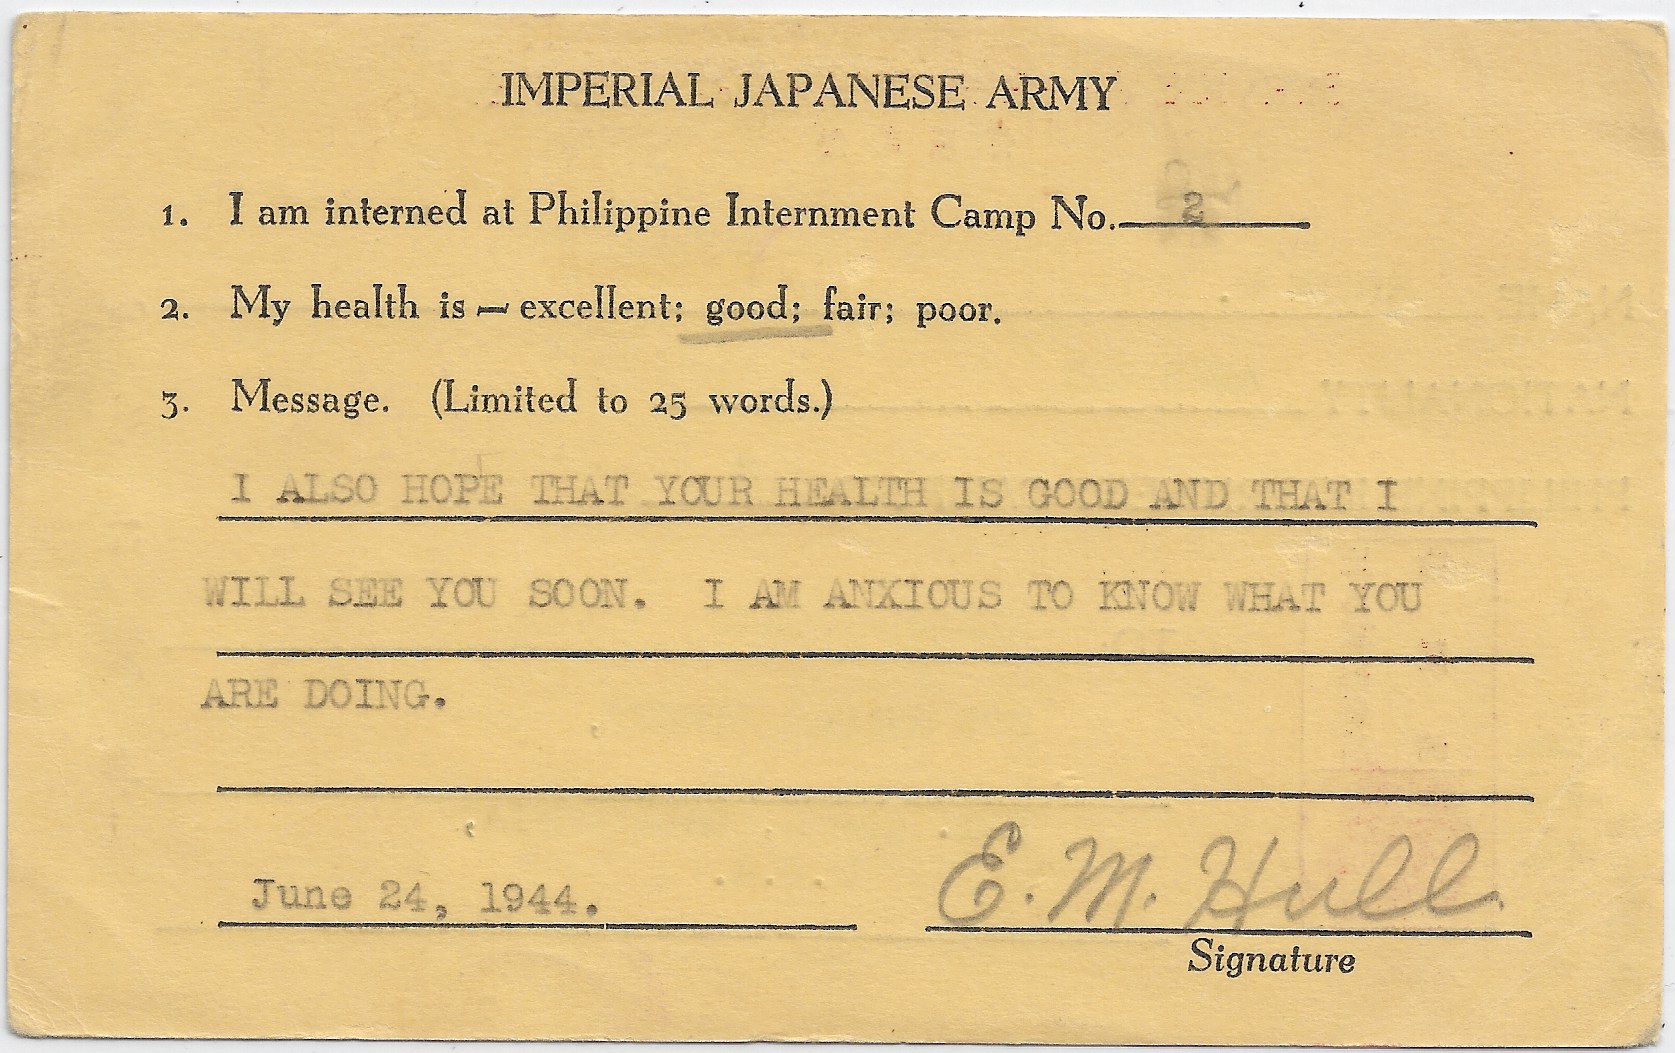 IMPERIAL JAPANESE ARMY
1. I am interned at Philippine Internment Camp No. 2
2. My health is — excellent; good; fair; poor.
3. Message. (Limited to 25 words.)
I ALSO HOPE THAT YOUR HEALTH IS GOOD AND THAT I
WILL SEE YOU SOON. I AM ANXIOUS TO KNOW WHAT YOU
ARE DOING.
June 24, 1944. E. M. Hull
Signature